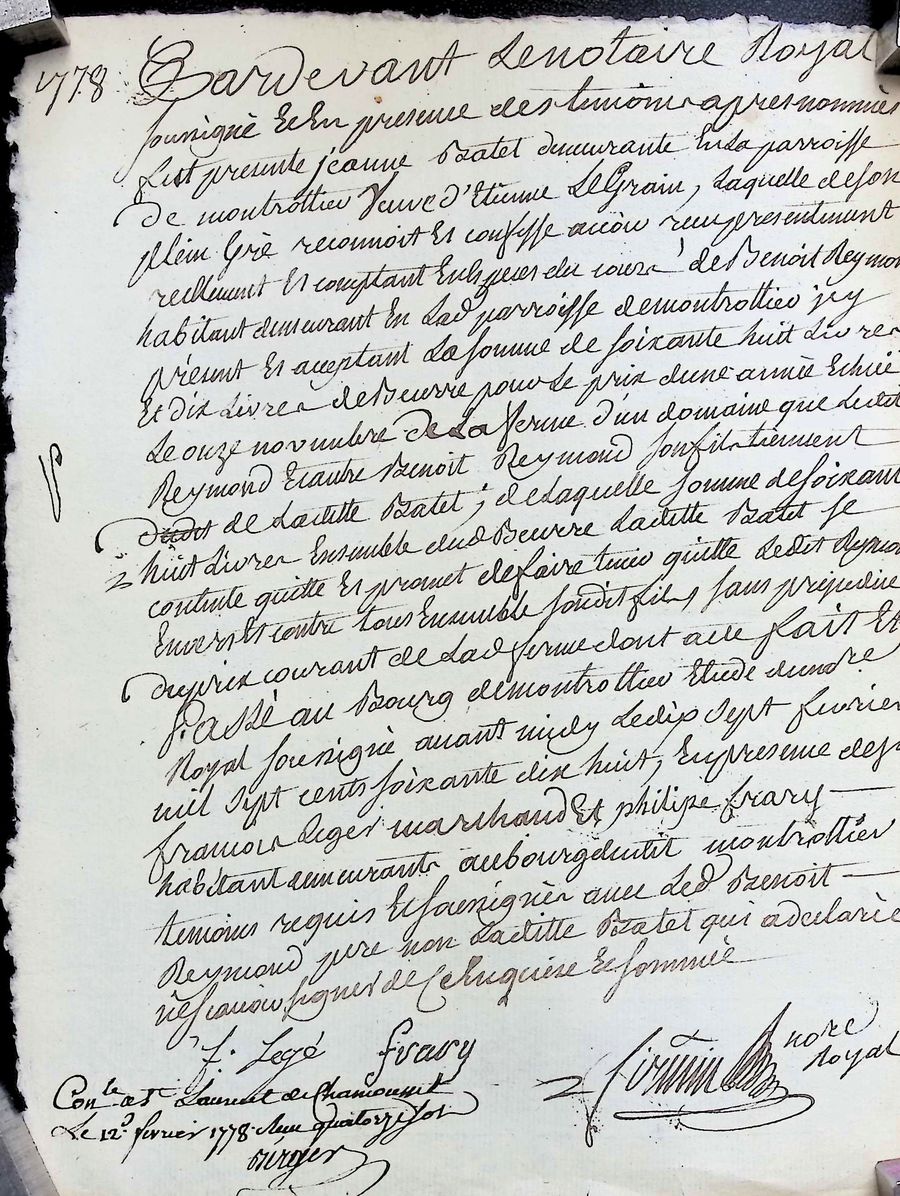 1778 Pardevant Le notaire Royal
soussigné Et En presence des temoins apres nommés
fust presente jeanne Batet demeurante En La parroisse
De montrottier Veuve d'Etienne LeGrain, Laquelle de son
plein Gré reconnoit Et confesse avoir reçu presentement
reellement Et comptant En Especes du cours de Benoit Reymon
habitant demeurant En Lad parroisse de montrottier jcy
présent Et aceptant La somme de soixante huit Livres
Et Dix Livres de Beurre pour Le prix dune année Echüe
Le onze novembre De La ferme d'un domaine que Ledit
Reymond Et autre Benoit Reymond son fils tiennent
dudit de Laditte Batet; de Laquelle somme de soixant
huit Livres Ensemble dud Beurre Laditte Batet se
contente quitte Et promet defaire tenir quitte Ledit Reymon
Envers Et contre tous Ensemble son dit fils, sans prejudice
du prix courant de Lad ferme dont acte fait Et
Passé au Bourg de montrottier Etude du nore
Royal soussigné avant midy Le dix sept fevrier
mil sept cents soixante dix huit, En presence de sr
francois Leger marchand Et philipe frary
habitant demeurants au bourg dudit montrottier
temoins requis Et soussignés avec Led Benoit
Reymond pere non Laditte Batet qui a declaré
ne scavoir signer de ce Enquise Et sommée
f. Legé frary
firmin nore
Royal
Conlé a St Laurent de Chamousset
Le 12 fevrier 1778 Reçu quatorze sols